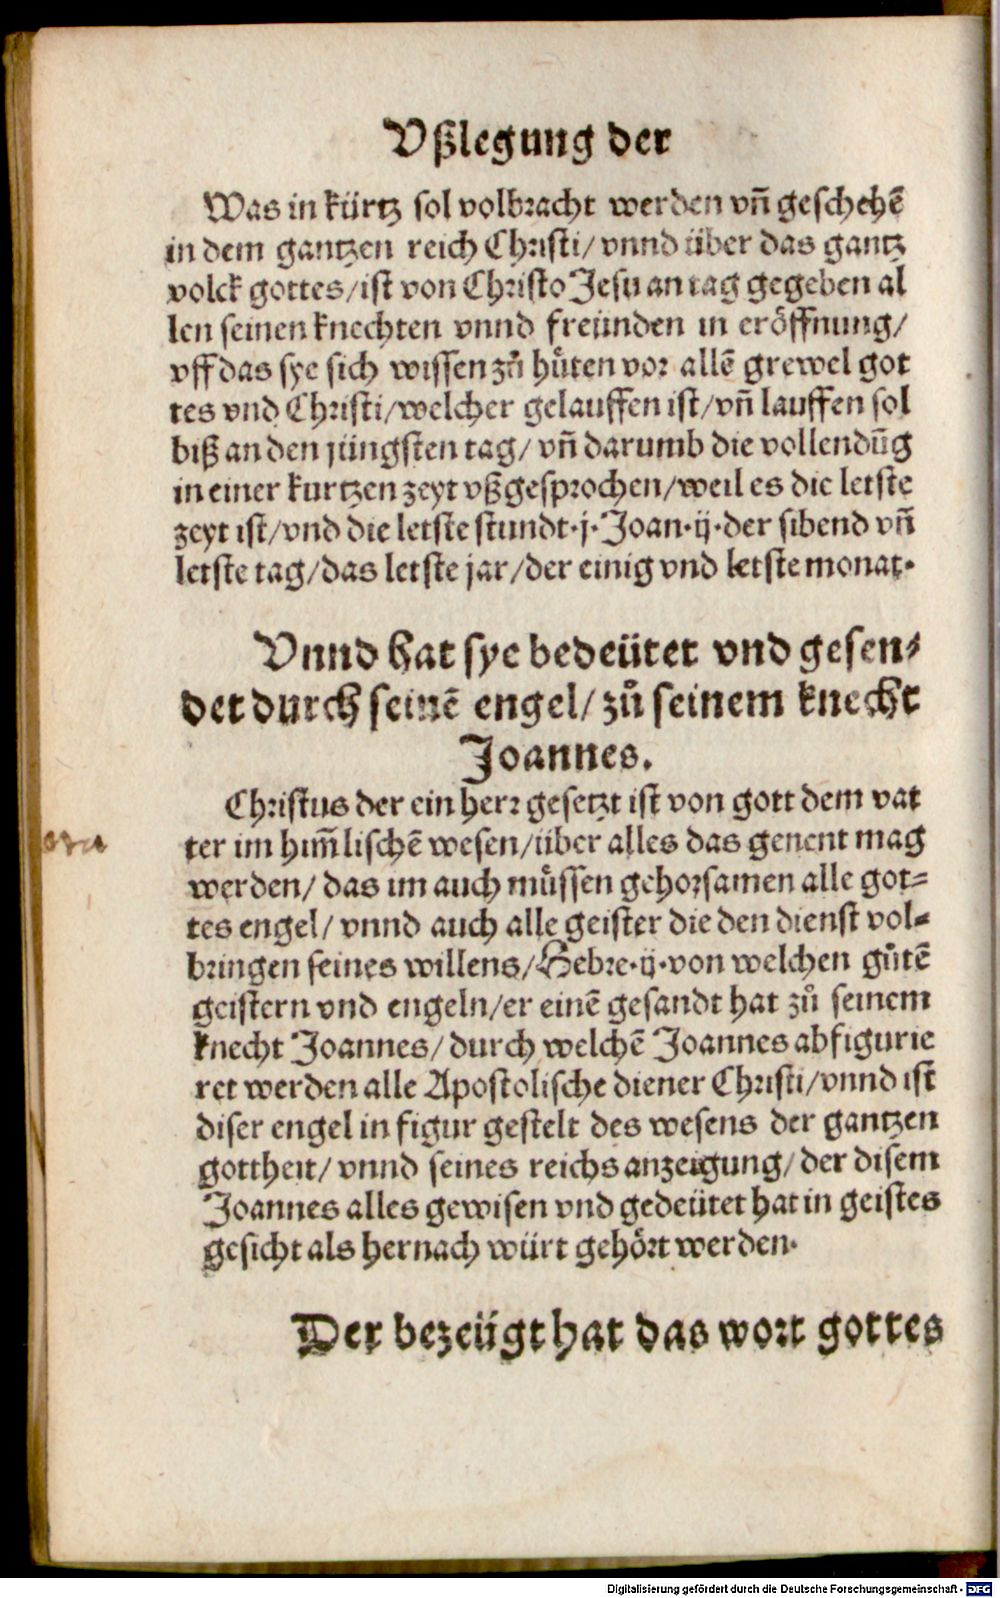 Vßlegung der
Was in kürtz sol volbracht werden vñ geschehẽ
in dem gantzen reich Christi/ vnnd über das gantz
volck gottes/ist von Christo Jesu an tag gegeben al
len seinen knechten vnnd freünden in eröffnung/
vff das sye sich wissen zů hůten vor allẽ grewel got
tes vnd Christi/welcher gelauffen ist/vñ lauffen sol
biß an den jüngsten tag/ vñ darumb die vollendũg
in einer kurtzen zeyt vßgesprochen/weil es die letste
zeyt ist/vnd die letste stundt·j·Joan·ij·der sibend vñ
letste tag/das letste jar/der einig vnd letste monat·
Vnnd hat sye bedeütet vnd gesen⸗
det durch seinẽ engel/ zů seinem knecht
Joannes.
Christus der ein herr gesetzt ist von gott dem vat
ter im him̃lischẽ wesen/über alles das genent mag
werden/ das im auch müssen gehorsamen alle got⸗
tes engel/ vnnd auch alle geister die den dienst vol⸗
bringen seines willens/Hebre·ij·von welchen gůtẽ
geistern vnd engeln/er einẽ gesandt hat zů seinem
knecht Joannes/ durch welchẽ Joannes abfigurie
ret werden alle Apostolische diener Christi/vnnd ist
diser engel in figur gestelt des wesens der gantzen
gottheit/ vnnd seines reichs anzeigung/der disem
Joannes alles gewisen vnd gedeütet hat in geistes
gesicht als hernach würt gehört werden·
Der bezeügt hat das wort gottes
Digitalisierung gefördert durch die Deutsche Forschungsgemeinschaft - DFG